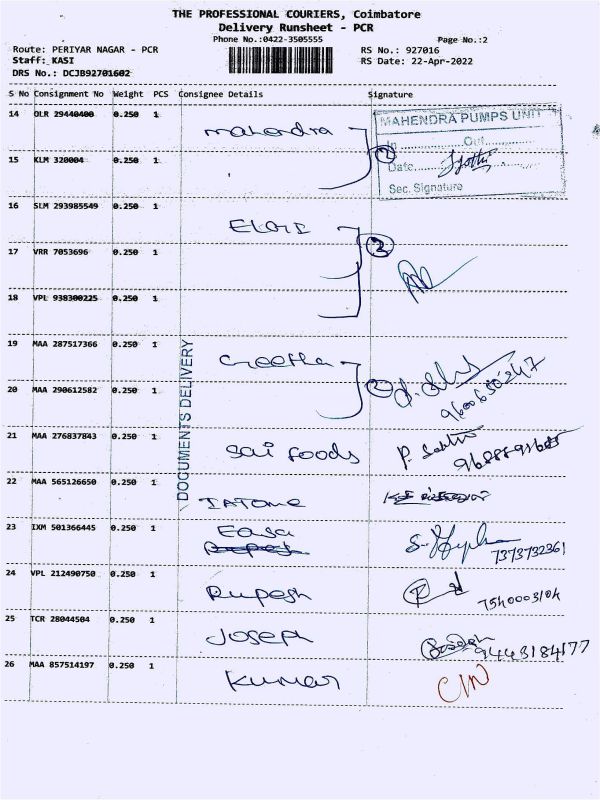 THE PROFESSIONAL COURIERS, Coimbatore
Delivery Runsheet - PCR
Phone No.:0422-3505555
Page No.:2
Route: PERIYAR NAGAR - PCR
RS No.: 927016
Staff: KASI
RS Date: 22-Apr-2022
DRS No.: DCJB92701602
S No Consignment No Weight PCS Consignee Details Signature
14 DLR 29440400 0.250 1 mahendra
MAHENDRA PUMPS UNIT
In Out
15 KLM 320004 0.250 1 2
Date Jyothi
Sec. Signature
16 SLM 293985549 0.250 1 ELGI
17 VRR 7053696 0.250 1
18 VPL 938300225 0.250 1
DOCUMENTS DELIVERY
19 MAA 287517366 0.250 1 Geetha
20 MAA 290612582 0.250 1 2 9600650247
21 MAA 276837843 0.250 1 Sai foods
22 MAA 565126650 0.250 1 IATOME
23 IXM 501366445 0.250 1 Easa 7373732361
24 VPL 212490750 0.250 1 Rupesh
25 TCR 28044504 0.250 1 Joseph 9443184177
26 MAA 857514197 0.250 1 Kumar